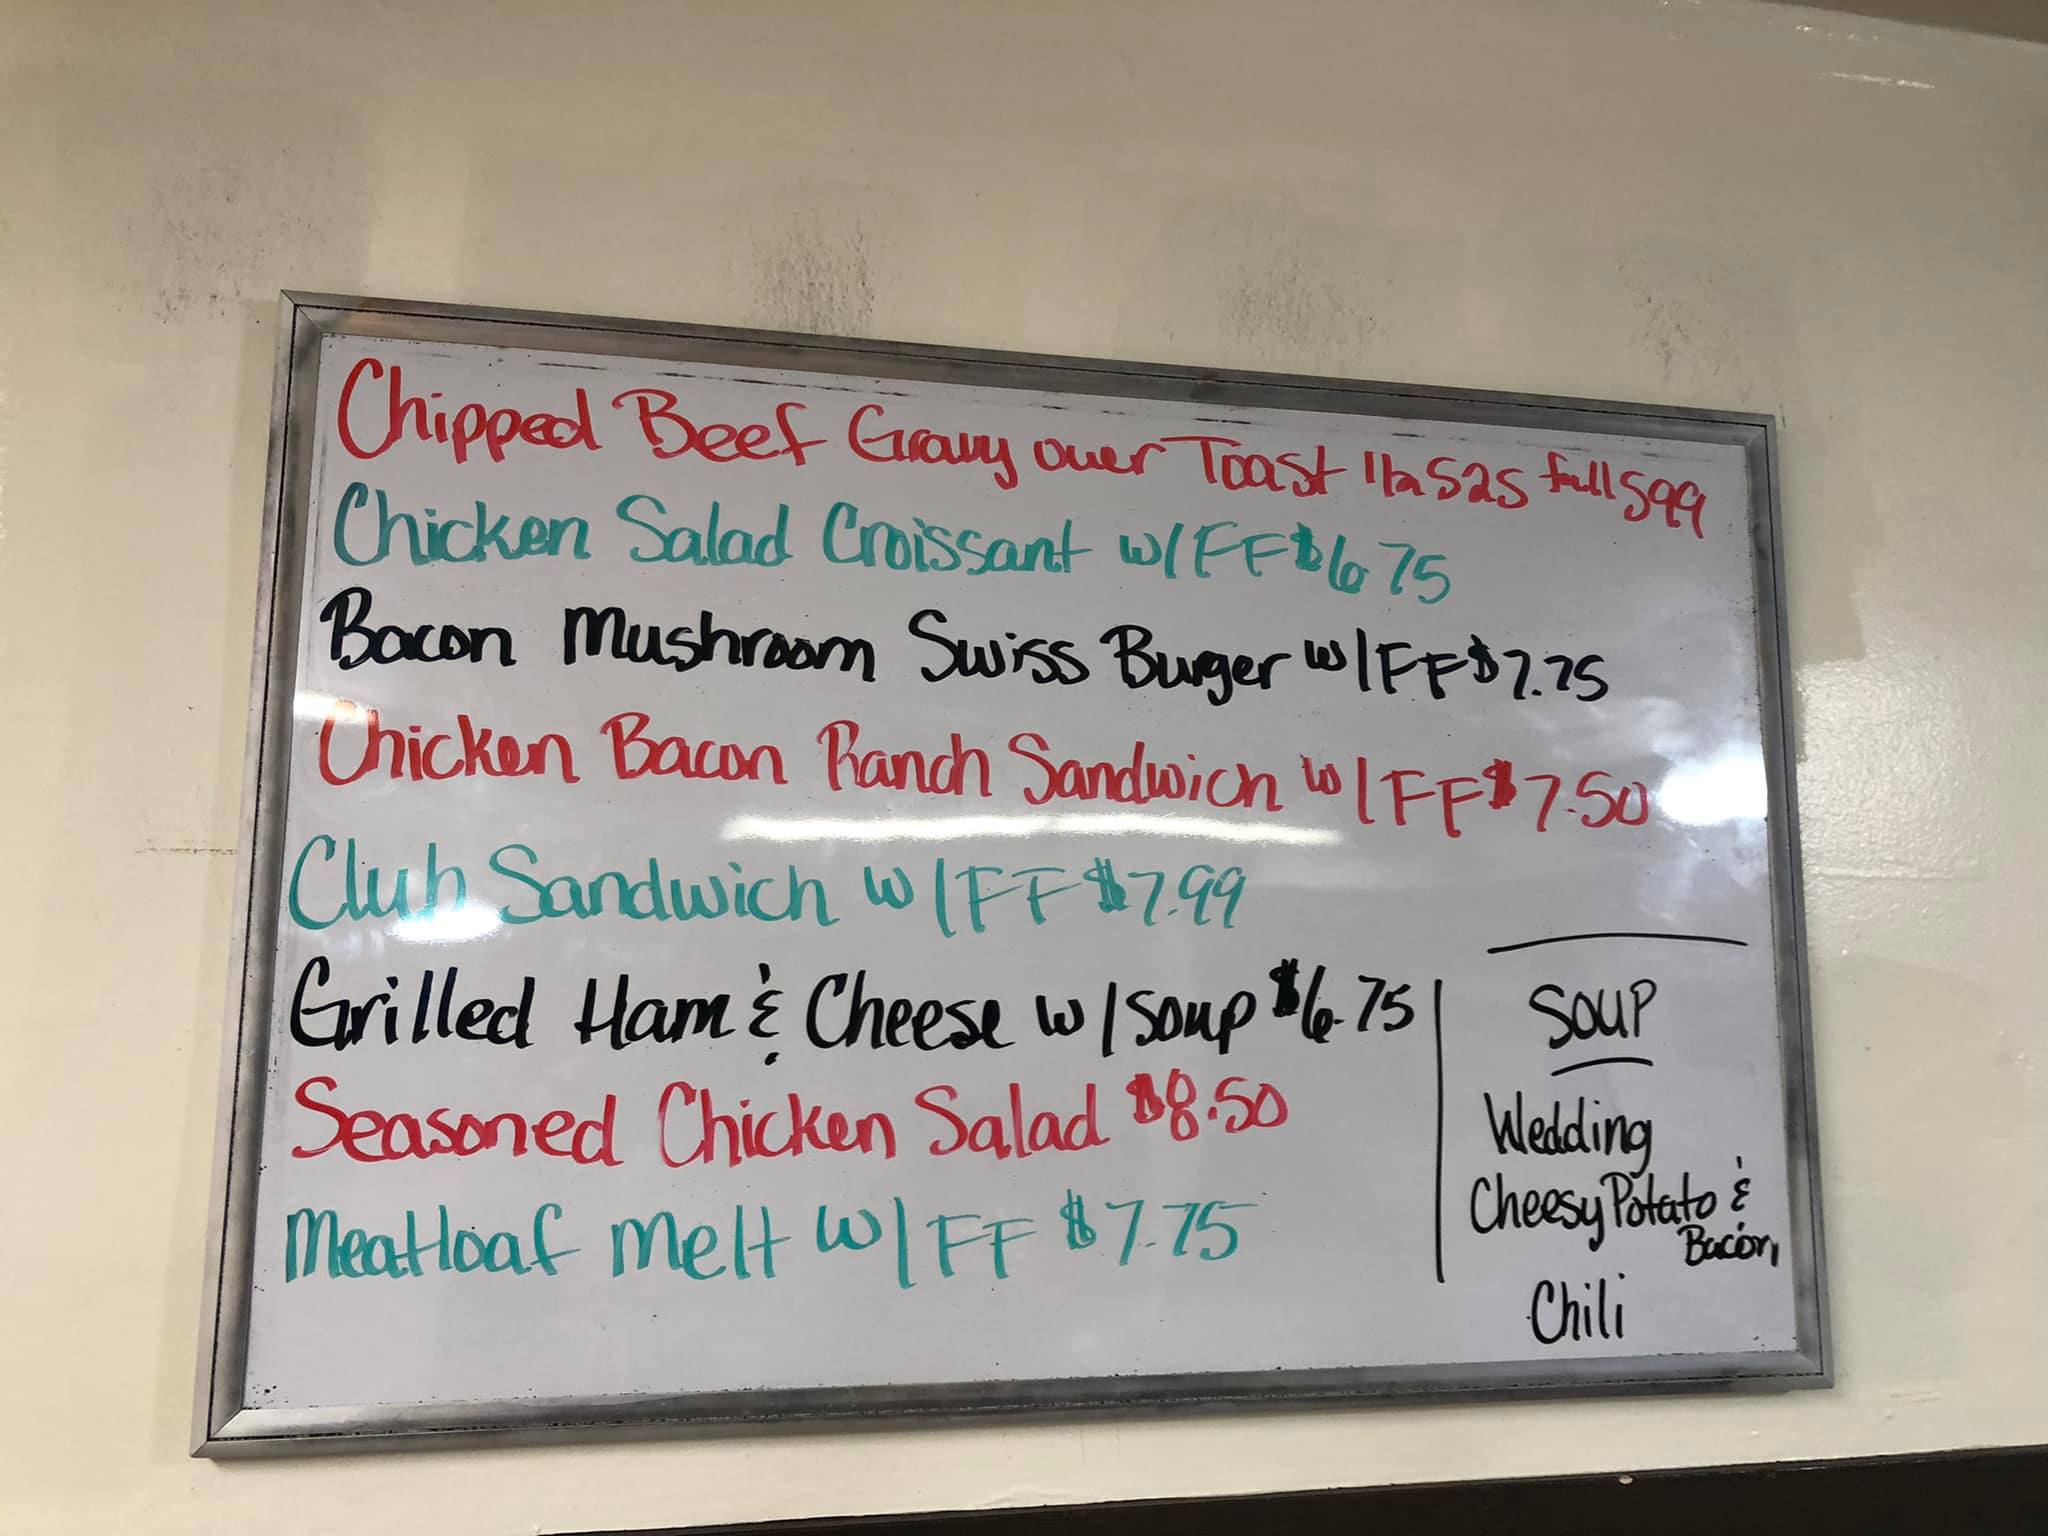 Chipped Beef Gravy over Toast 1/2 525 full 599
Chicken Salad Croissant w/FF $6.75
Bacon Mushroom Swiss Burger w/FF $7.75
Chicken Bacon Ranch Sandwich w/FF $7.50
Club Sandwich w/FF $7.99
Grilled Ham & Cheese w/soup $6.75
Seasoned Chicken Salad $8.50
Meatloaf Melt w/FF $7.75
SOUP
Wedding
Cheesy Potato &
Bacon
Chili